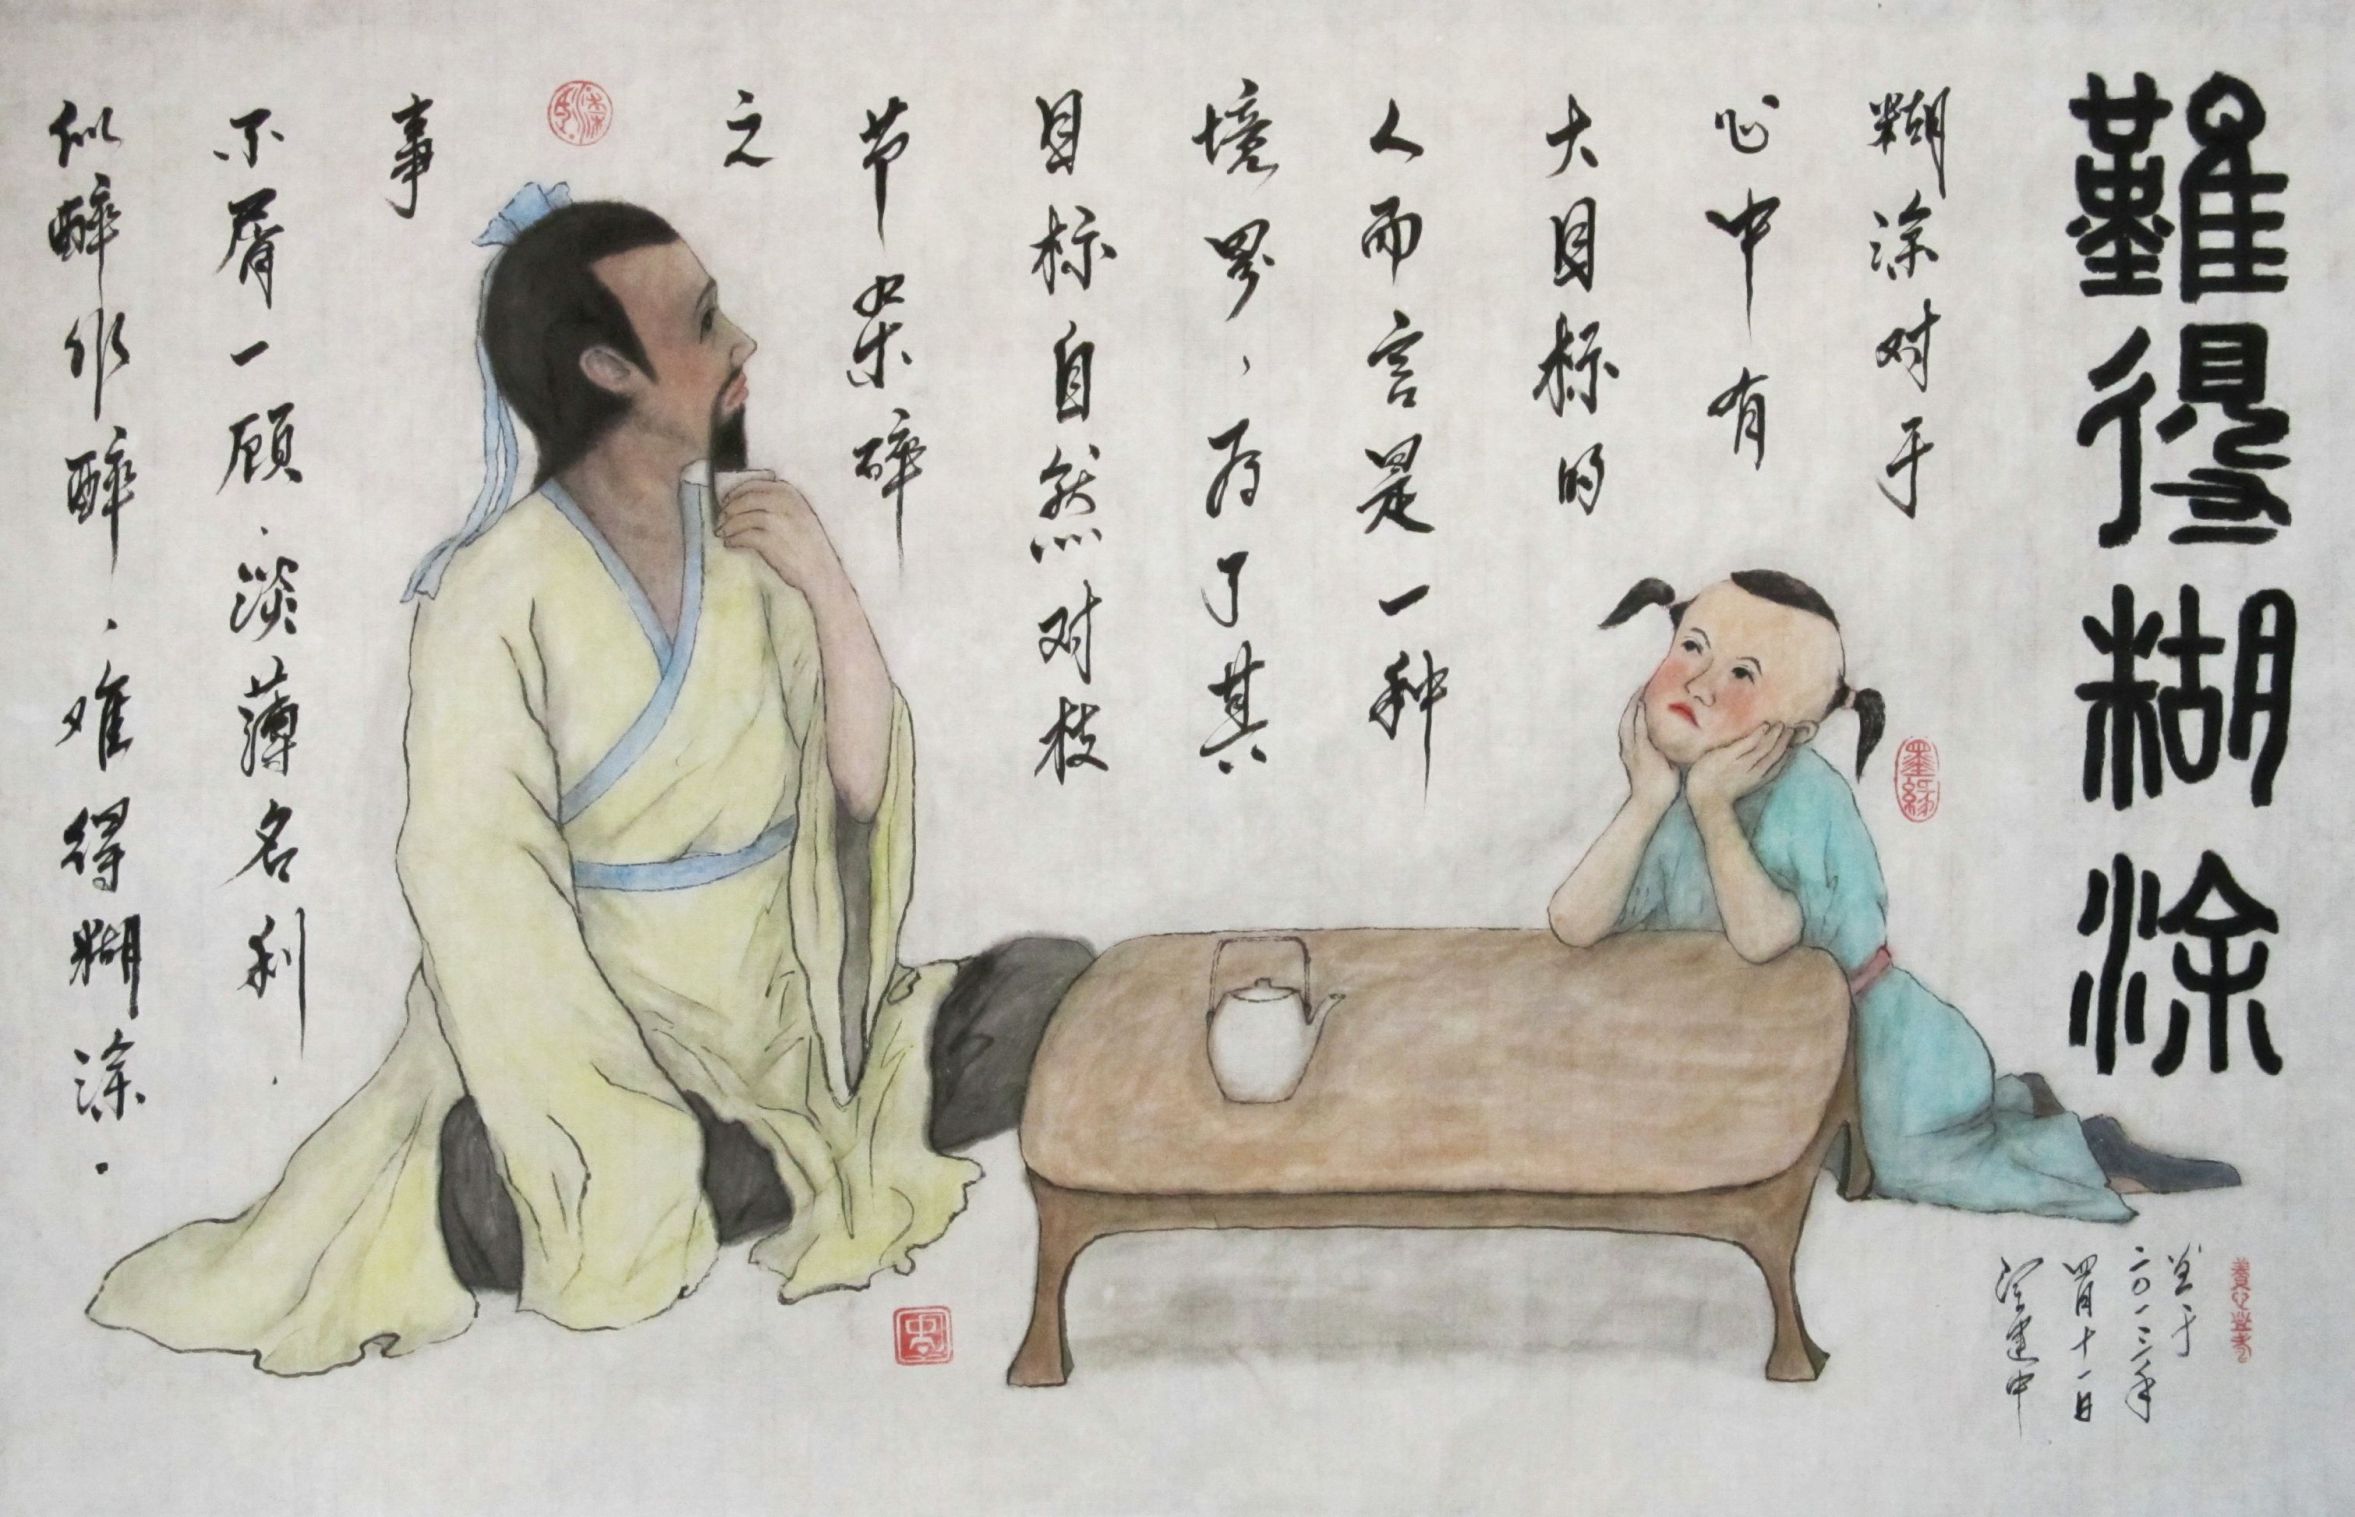 難得糊涂
糊涂对于
心中有
大目标的
人而言是一种
境界，为了其
目标自然对枝
节柴碎
之
事
不屑一顾．淡薄名利．
似醉非醉．难得糊涂．
二〇一三年
四月十一日